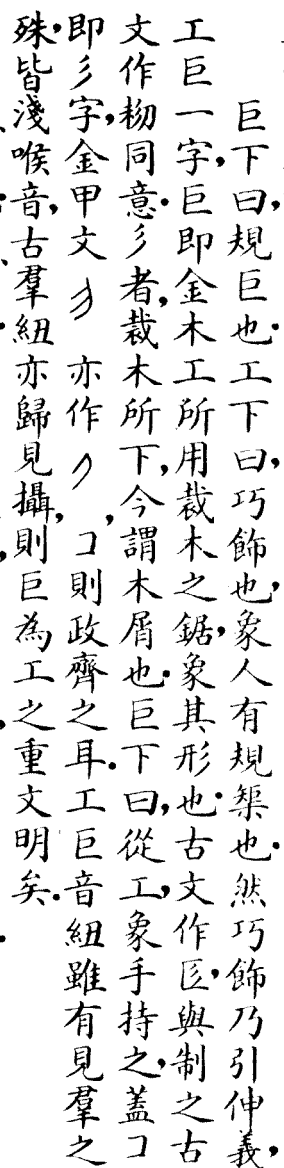 巨下曰，規巨也．工下曰，巧飾也，象人有規榘也．然巧飾乃引伸義，
工巨一字，巨即金木工所用裁木之鋸，象其形也．古文作𢀑，與制之古
文作𥝢同意．彡者，裁木所下，今謂木屑也．巨下曰，從工，象手持之，蓋コ
即彡字，金甲文 亦作 ，コ則政齊之耳．工巨音紐雖有見羣之
殊，皆淺喉音，古羣紐亦歸見攝，則巨為工之重文明矣．